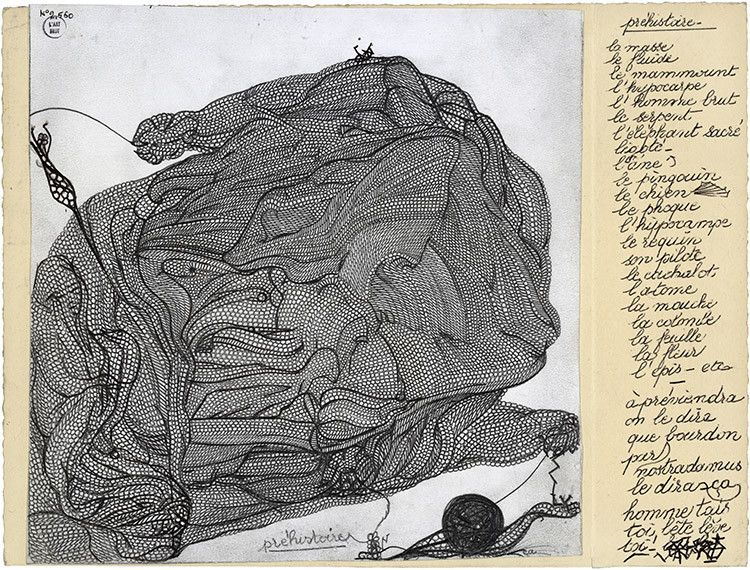 N°2.560
L'ART BRUT
préhistoire -
la masse
le fluide
le mammount
l'hypocarpe
l'homme brut
le serpent
l'éléphant sacré
l'âne
le pingouin
le chien
le phoque
l'hyppocampe
le requin
son pilote
le cachalot
l'atome
la mouche
la feuille
la fleur
l'épis - etc
à préviendra
on le dira
que bourdon
pur
nostradamus
le dira ça
homme tais
toi, bête lève
toi -
préhistoires